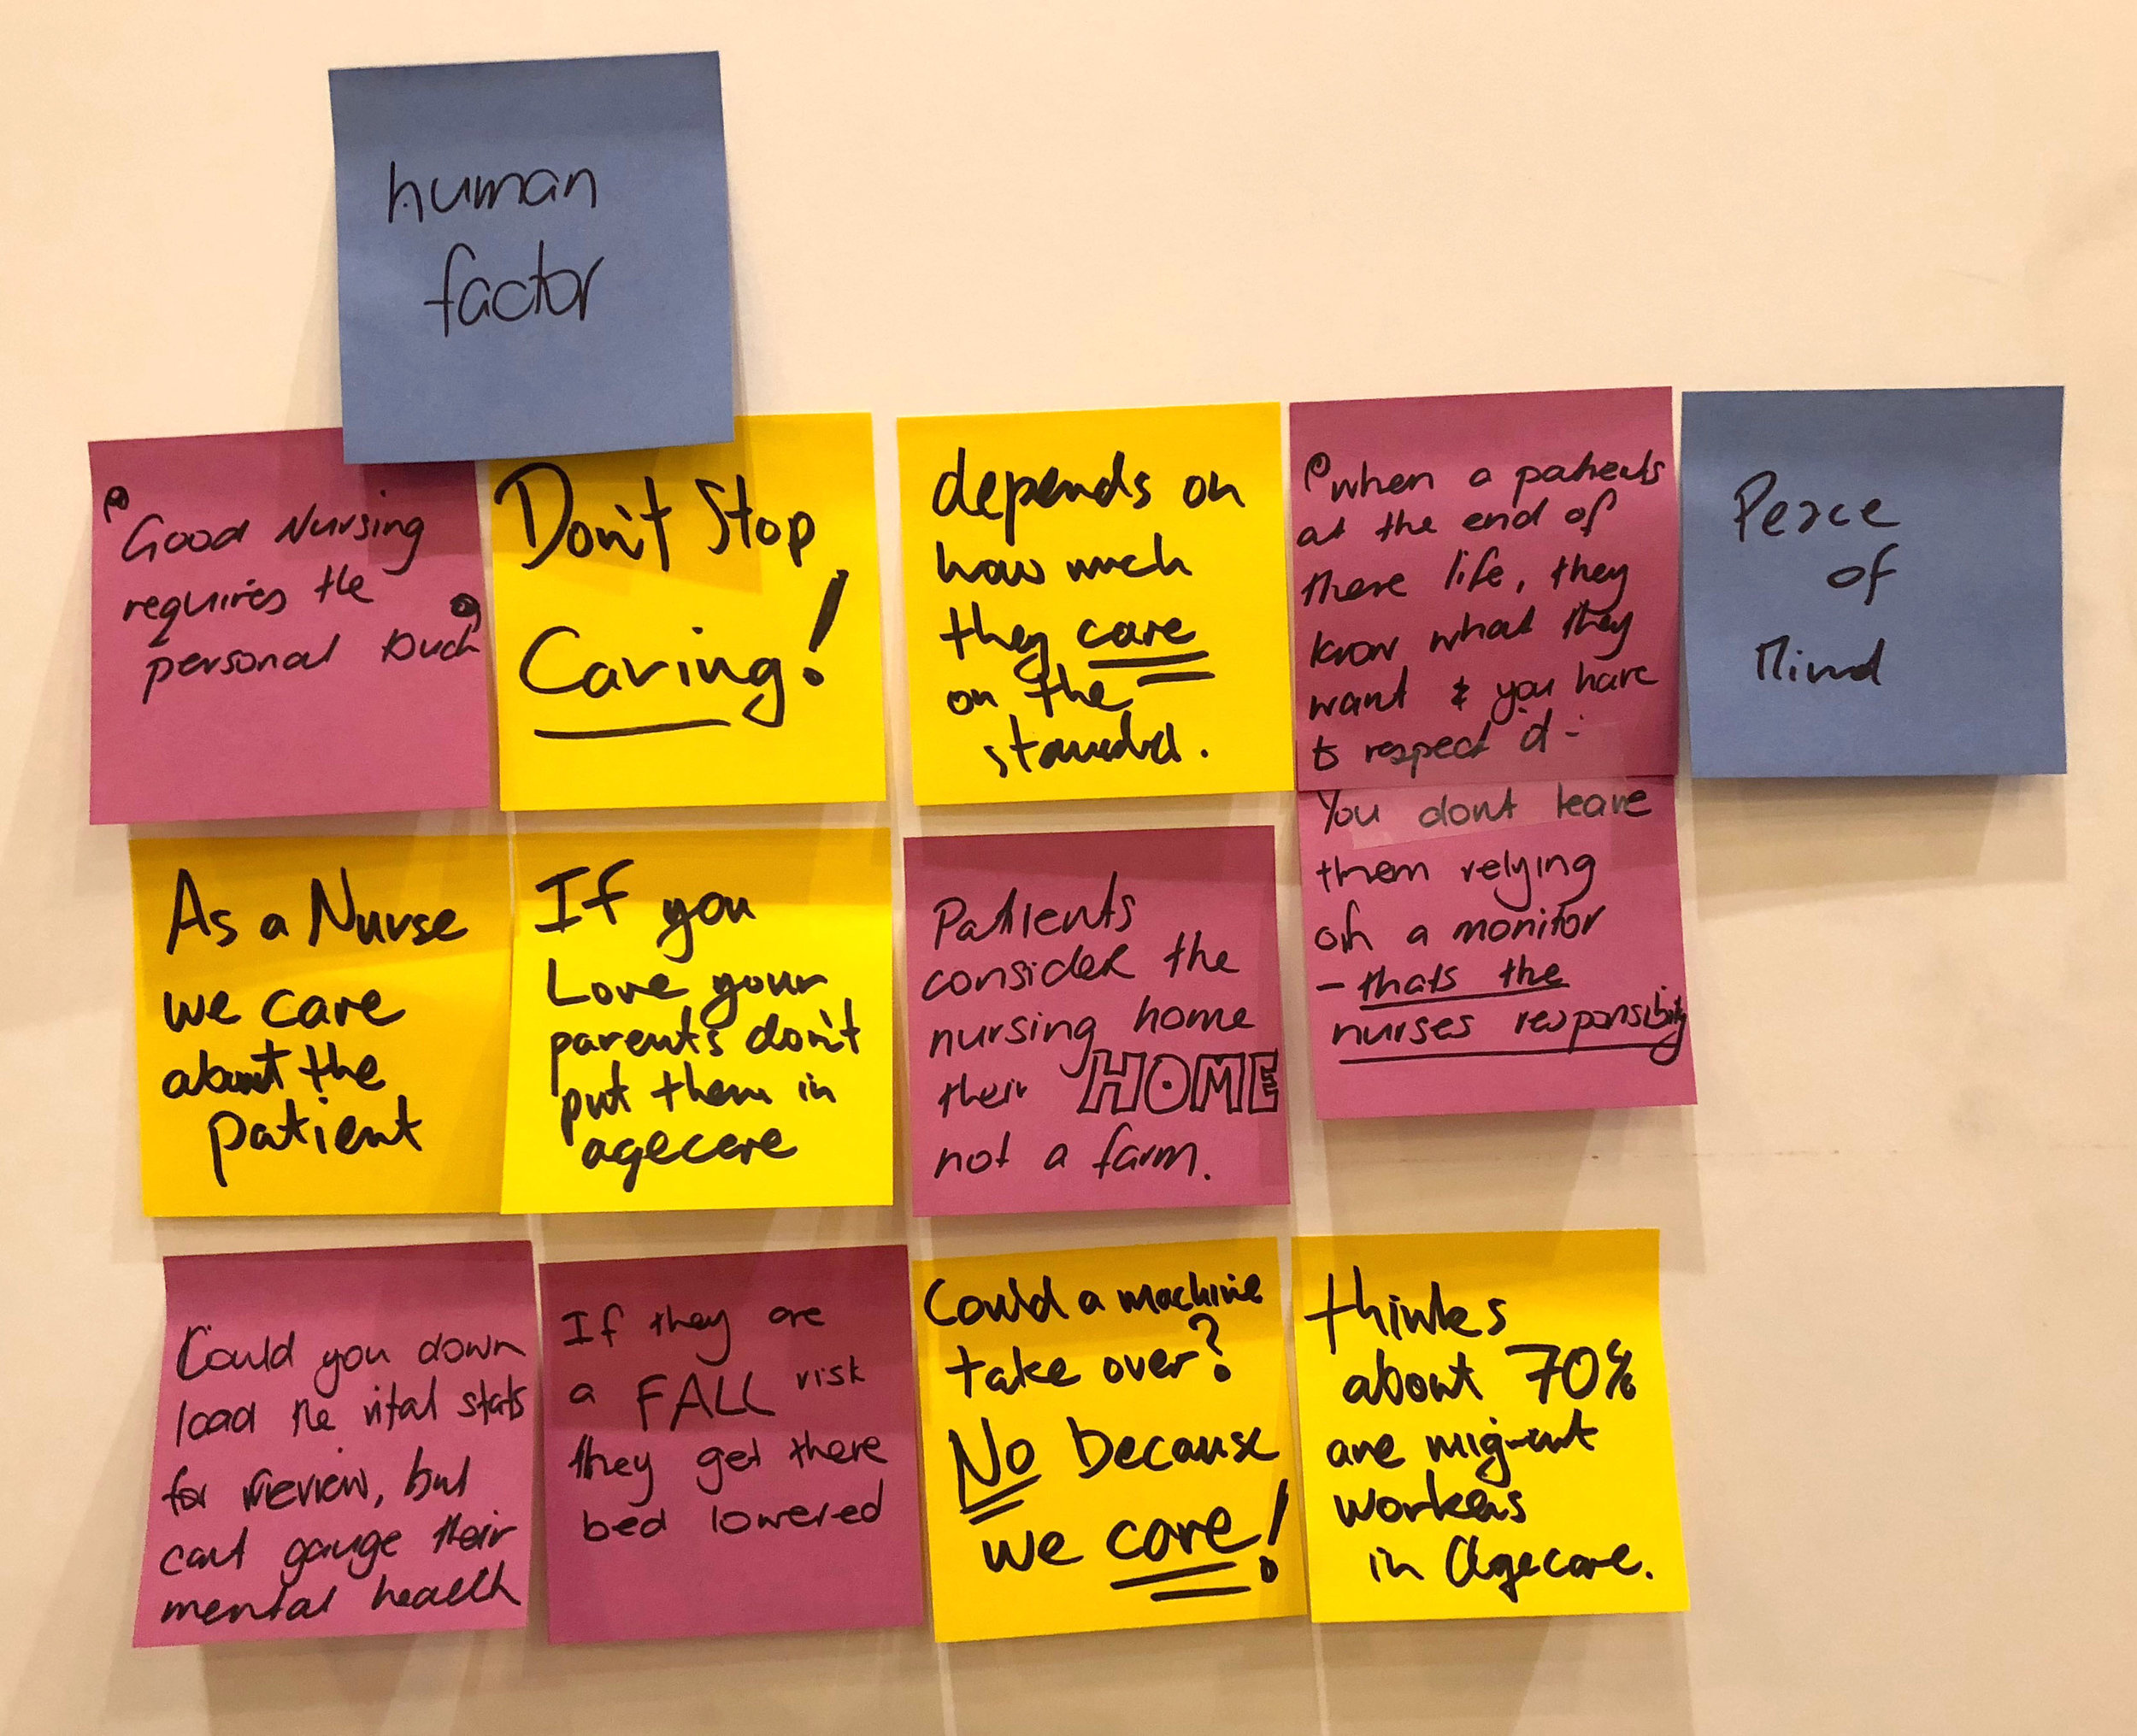 human
factor
"Good Nursing
requires the
personal touch"
Don't Stop
Caring!
depends on
how much
they care
on the
"when a patients
at the end of
there life, they
know what they
want & you have
to respect it -
You dont leave
them relying
on a monitor
- thats the
nurses responsibility
Peace
of
Mind
As a Nurse
we care
about the
patient
If you
Love your
parents don't
put them in
agecare
Patients
consider the
nursing home
their HOME
not a farm.
Could you down
load the vital stats
for review, but
cant gauge their
mental health
If they are
a FALL risk
they get there
bed lowered
Could a machine
take over?
No because
we care!
thinks
about 70%
are migrant
workers
in Agecare.